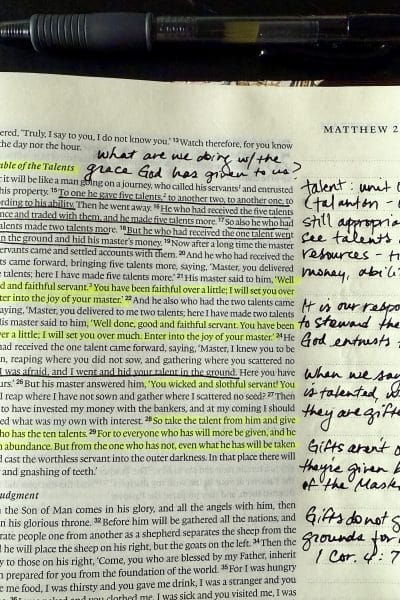 MATTHEW 2
ered, 'Truly, I say to you, I do not know you.' 13 Watch therefore, for you
the day nor the hour.
what are we doing w/ the
grace God has given to us?
able of the Talents
r it will be like a man going on a journey, who called his servants and entrusted
his property. 15 To one he gave five talents, to another two, to another one, to
ording to his ability. Then he went away. 16 He who had received the five talents
nce and traded with them, and he made five talents more. 17 So also he who had
talents made two talents more. 18 But he who had received the one talent went
in the ground and hid his master's money. 19 Now after a long time the master
servants came and settled accounts with them. 20 And he who had received the
ts came forward, bringing five talents more, saying, 'Master, you delivered
e talents; here I have made five talents more.' 21 His master said to him, 'Well
d and faithful servant. You have been faithful over a little; I will set you over
ter into the joy of your master.' 22 And he also who had the two talents came
saying, 'Master, you delivered to me two talents; here I have made two talents
His master said to him, 'Well done, good and faithful servant. You have been
over a little; I will set you over much. Enter into the joy of your master.' 24 He
had received the one talent came forward, saying, 'Master, I knew you to be
n, reaping where you did not sow, and gathering where you scattered no
I was afraid, and I went and hid your talent in the ground. Here you have
urs.' 26 But his master answered him, 'You wicked and slothful servant! You
I reap where I have not sown and gather where I scattered no seed? 27 Then
to have invested my money with the bankers, and at my coming I should
ed what was my own with interest. 28 So take the talent from him and give
who has the ten talents. 29 For to everyone who has will more be given, and he
n abundance. But from the one who has not, even what he has will be taken
d cast the worthless servant into the outer darkness. In that place there will
and gnashing of teeth.'
Judgment
n the Son of Man comes in his glory, and all the angels with him, then
n his glorious throne. 32 Before him will be gathered all the nations, and
rate people one from another as a shepherd separates the sheep from the
d he will place the sheep on his right, but the goats on the left. 34 Then the
y to those on his right, 'Come, you who are blessed by my Father, inherit
n prepared for you from the foundation of the world. 35 For I was hungry
e me food, I was thirsty and you gave me drink, I was a stranger and you
I was naked and you clothed me, I was sick and you visited me, I was
talent: unit
(talanton -
still appropria
see talents
resources - t
money, abili
It is our respo
to steward the
God entrusts
when we sa
is talented, w
they are gift
Gifts aren't
they're given b
of the Master
Gifts do not g
grounds for
1 Cor. 4:7